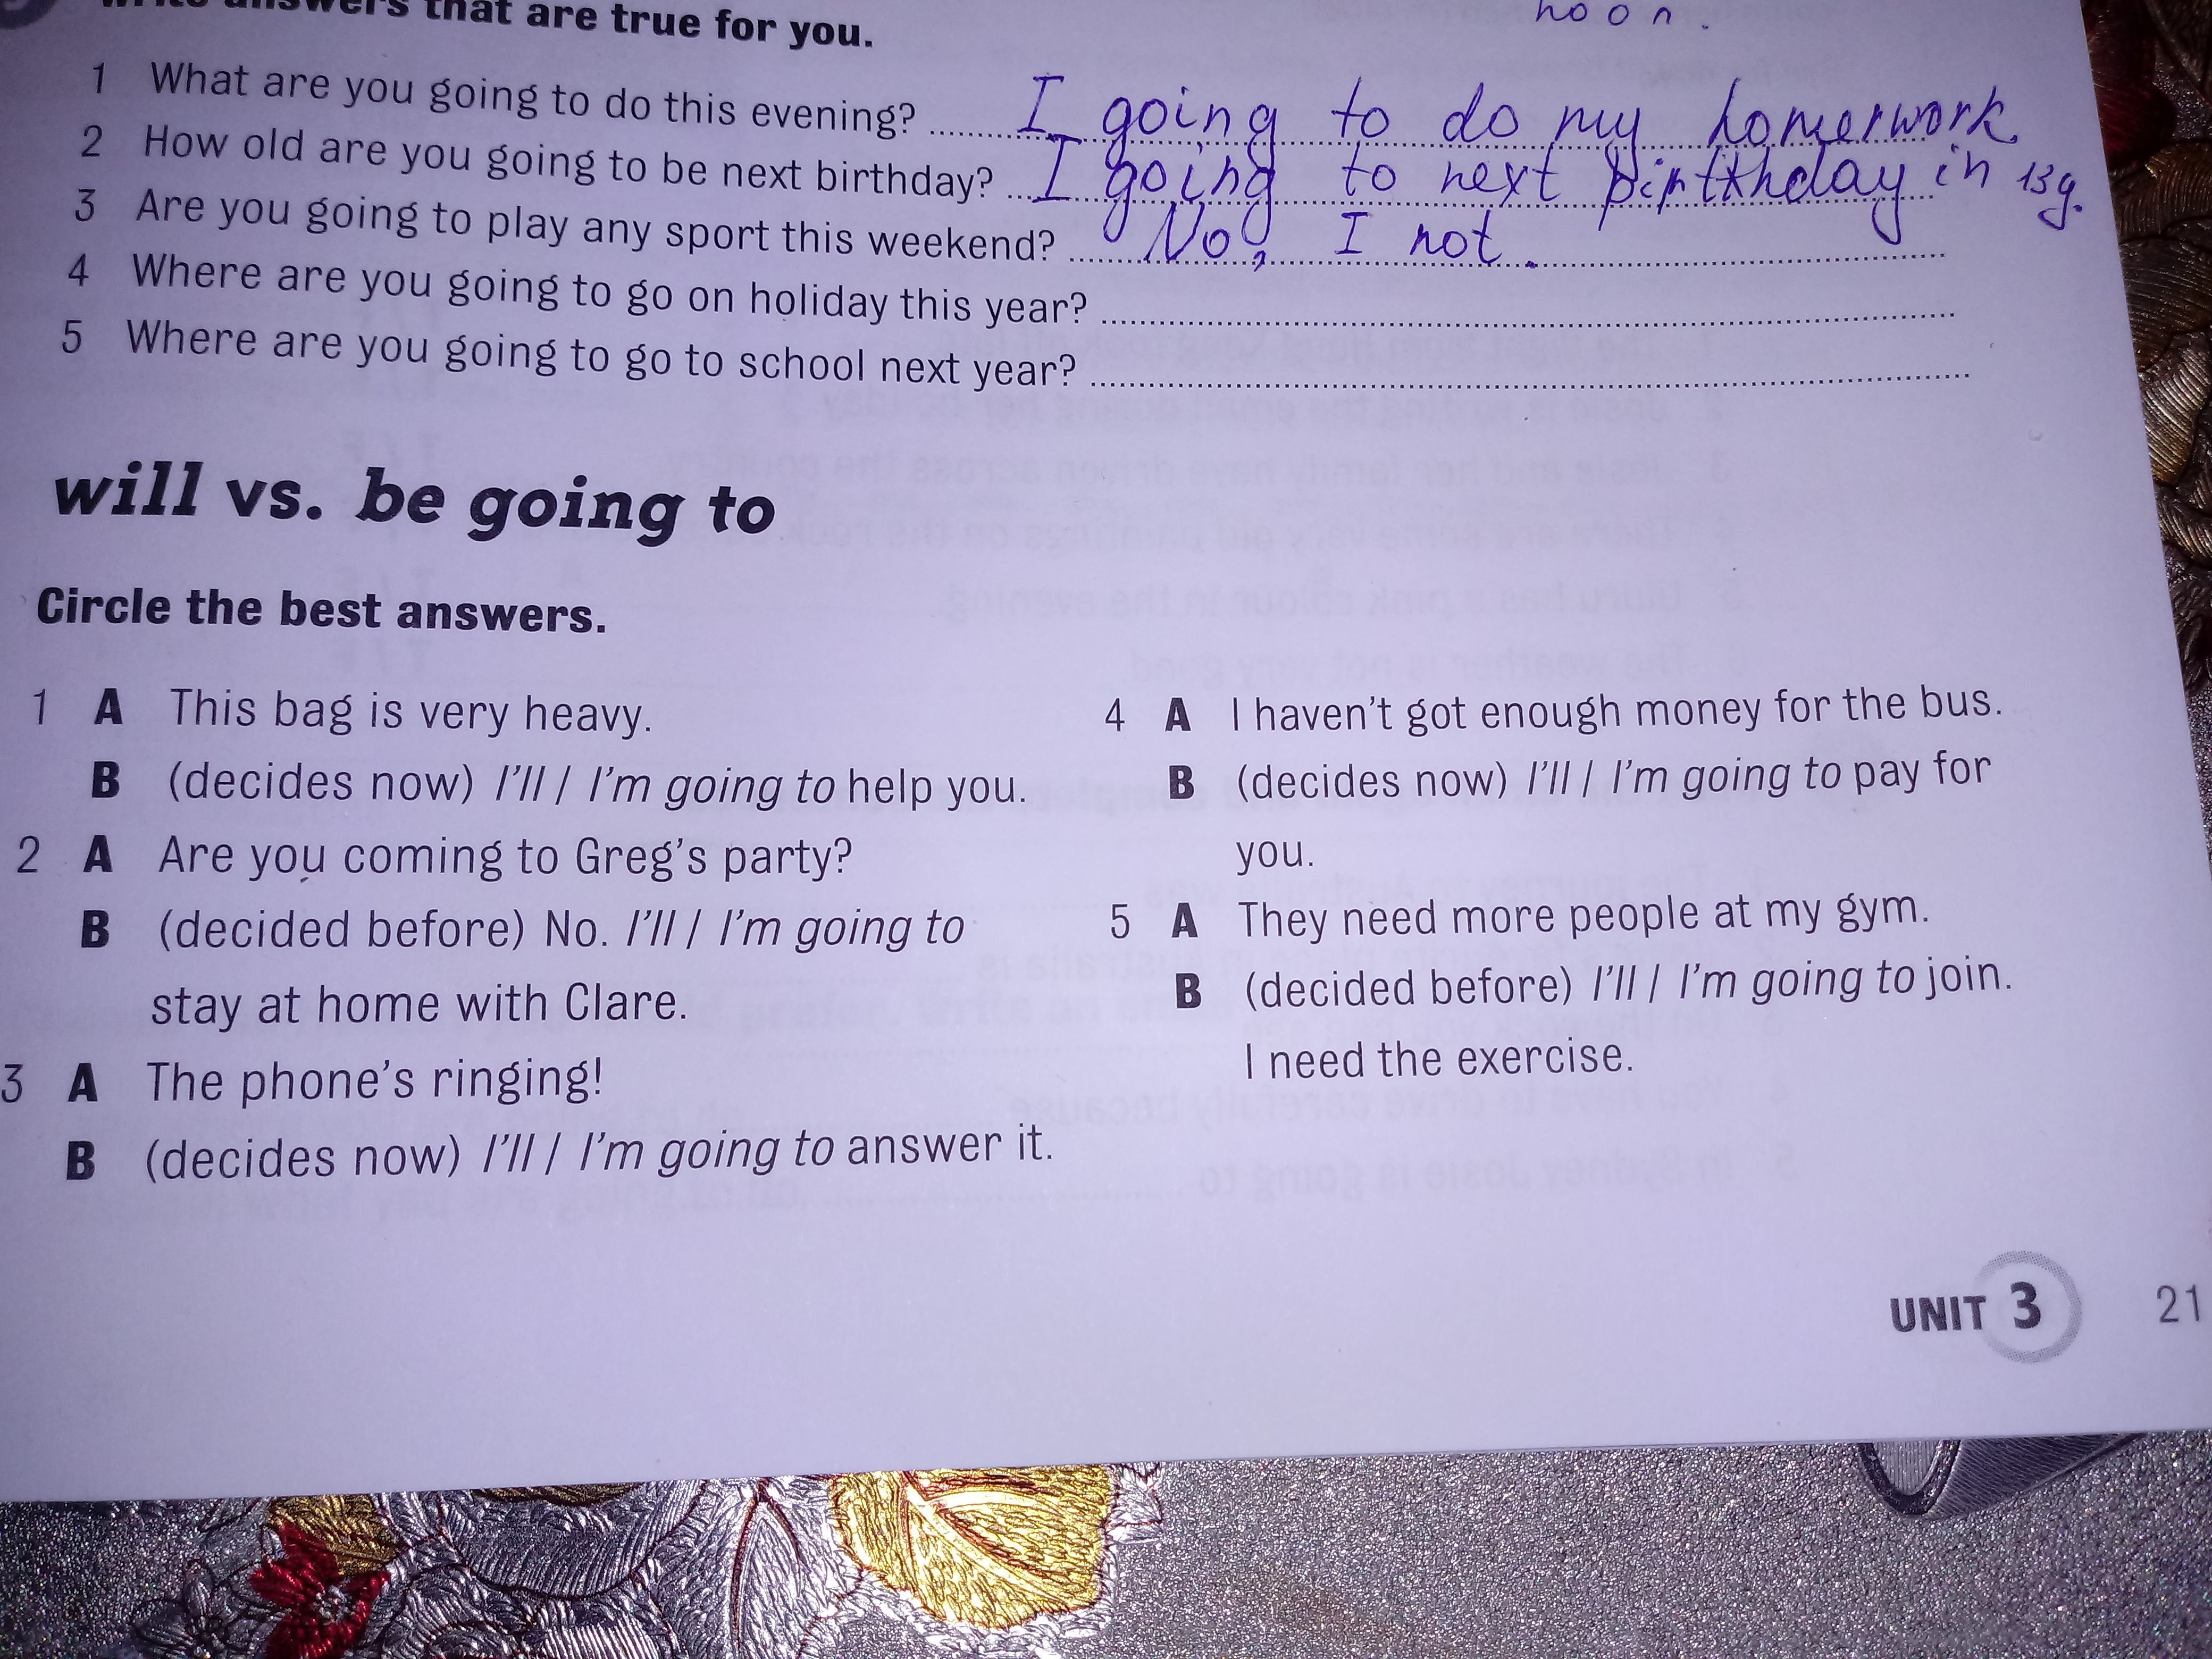 answers that are true for you.
noon.
1 What are you going to do this evening? I going to do my homerwork.
2 How old are you going to be next birthday? I going to next birthday in 13 y.
3 Are you going to play any sport this weekend? No, I not.
4 Where are you going to go on holiday this year?
5 Where are you going to go to school next year?
will vs. be going to
Circle the best answers.
1 A This bag is very heavy.
B (decides now) I'll / I'm going to help you.
2 A Are you coming to Greg's party?
B (decided before) No. I'll / I'm going to
stay at home with Clare.
3 A The phone's ringing!
B (decides now) I'll / I'm going to answer it.
4 A I haven't got enough money for the bus.
B (decides now) I'll / I'm going to pay for
you.
5 A They need more people at my gym.
B (decided before) I'll / I'm going to join.
I need the exercise.
UNIT 3 21